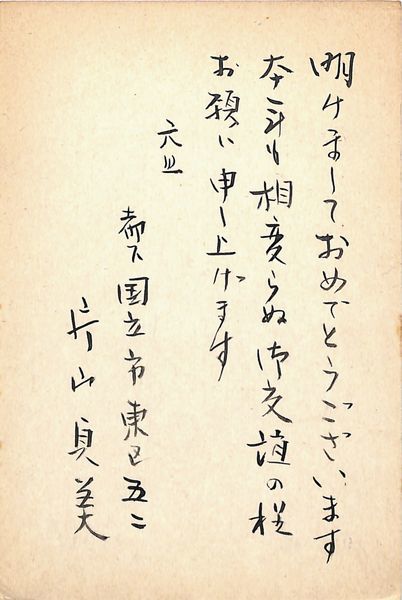 明けましておめでとうございます
本年も相変らぬ御交誼の程
お願い申し上げます
六旦
都下国立市東区五二
片山貞美